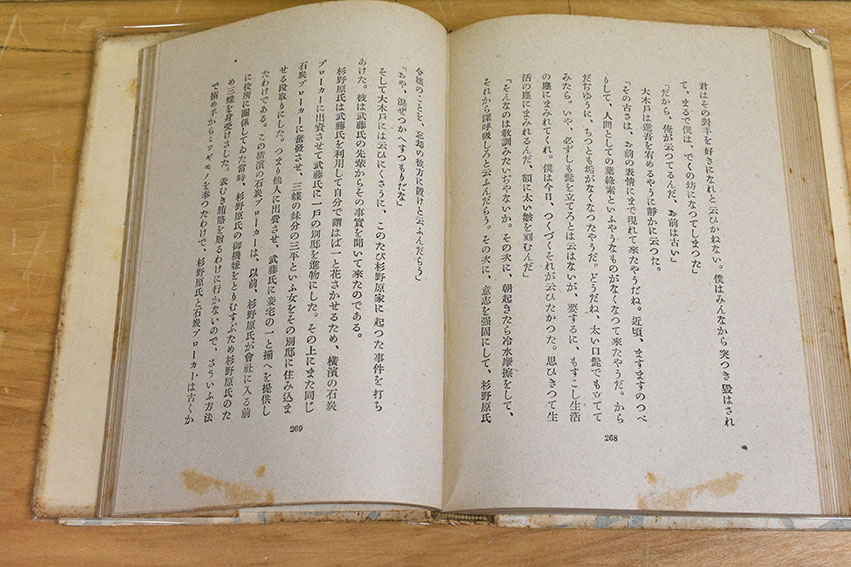 君はその對手を好きになれと云ひかねない。僕はみんなから突つき毀はされ
て、まるで僕は、でくの坊になつてしまつた」
「だから、俺が云つてるんだ、お前は古い」
大木戸は進吾を宥めるやうに靜かに云つた。
「その古さは、お前の表情にまで現れて來たやうだね。近頃、ますますのつぺ
りして、人間としての葉綠素といふやうなものがなくなつて來たやうだ。から
だぢゆうに、ちつとも垢がなくなつたやうだ。どうだね、太い口髭でも立てて
みたら。いや、必ずしも髭を立てろとは云はないが、要するに、もすこし生活
の塵にまみれてくれ。僕は今日、つくづくそれが云ひたかつた。思ひきつて生
活の塵にまみれるんだ、額に太い皺を刻むんだ」
「そんなのは敎訓みたいぢやないか。その次に、朝起きたら冷水摩擦をして、
それから深呼吸しろと云ふんだらう。その次に、意志を强固にして、杉野原氏
268
令孃のことを、忘却の彼方に置けと云ふんだらう」
「おや、混ぜつかへすつもりだな」
そして大木戸には云ひにくさうに、このたび杉野原家に起つた事件を打ち
あけた。彼は武藤氏の先輩からその事實を聞いて來たのである。
杉野原氏は武藤氏を利用して自分で謂はば一と花さかせるため、橫濱の石炭
ブローカーに出資させて武藤氏に一戸の別邸を進物にした。その上にまた同じ
石炭ブローカーに奮發させ、三蝶の妹分の三平といふ女をその別邸に住み込ま
せる段取りにした。つまり他人に出費させ、武藤氏に妾宅の一と揃へを提供し
たわけである。この橫濱の石炭ブローカーは、以前、杉野原氏が會社に入る前
に役所に關係してゐた當時、杉野原氏の御機嫌をとりむすぶため杉野原氏のた
め三蝶を身受けさした。表むき賄賂を贈るわけに行かないので、さういふ方法
で搦め手からミツギモノを奉つたわけで、杉野原氏と石炭ブローカーは古くか
269